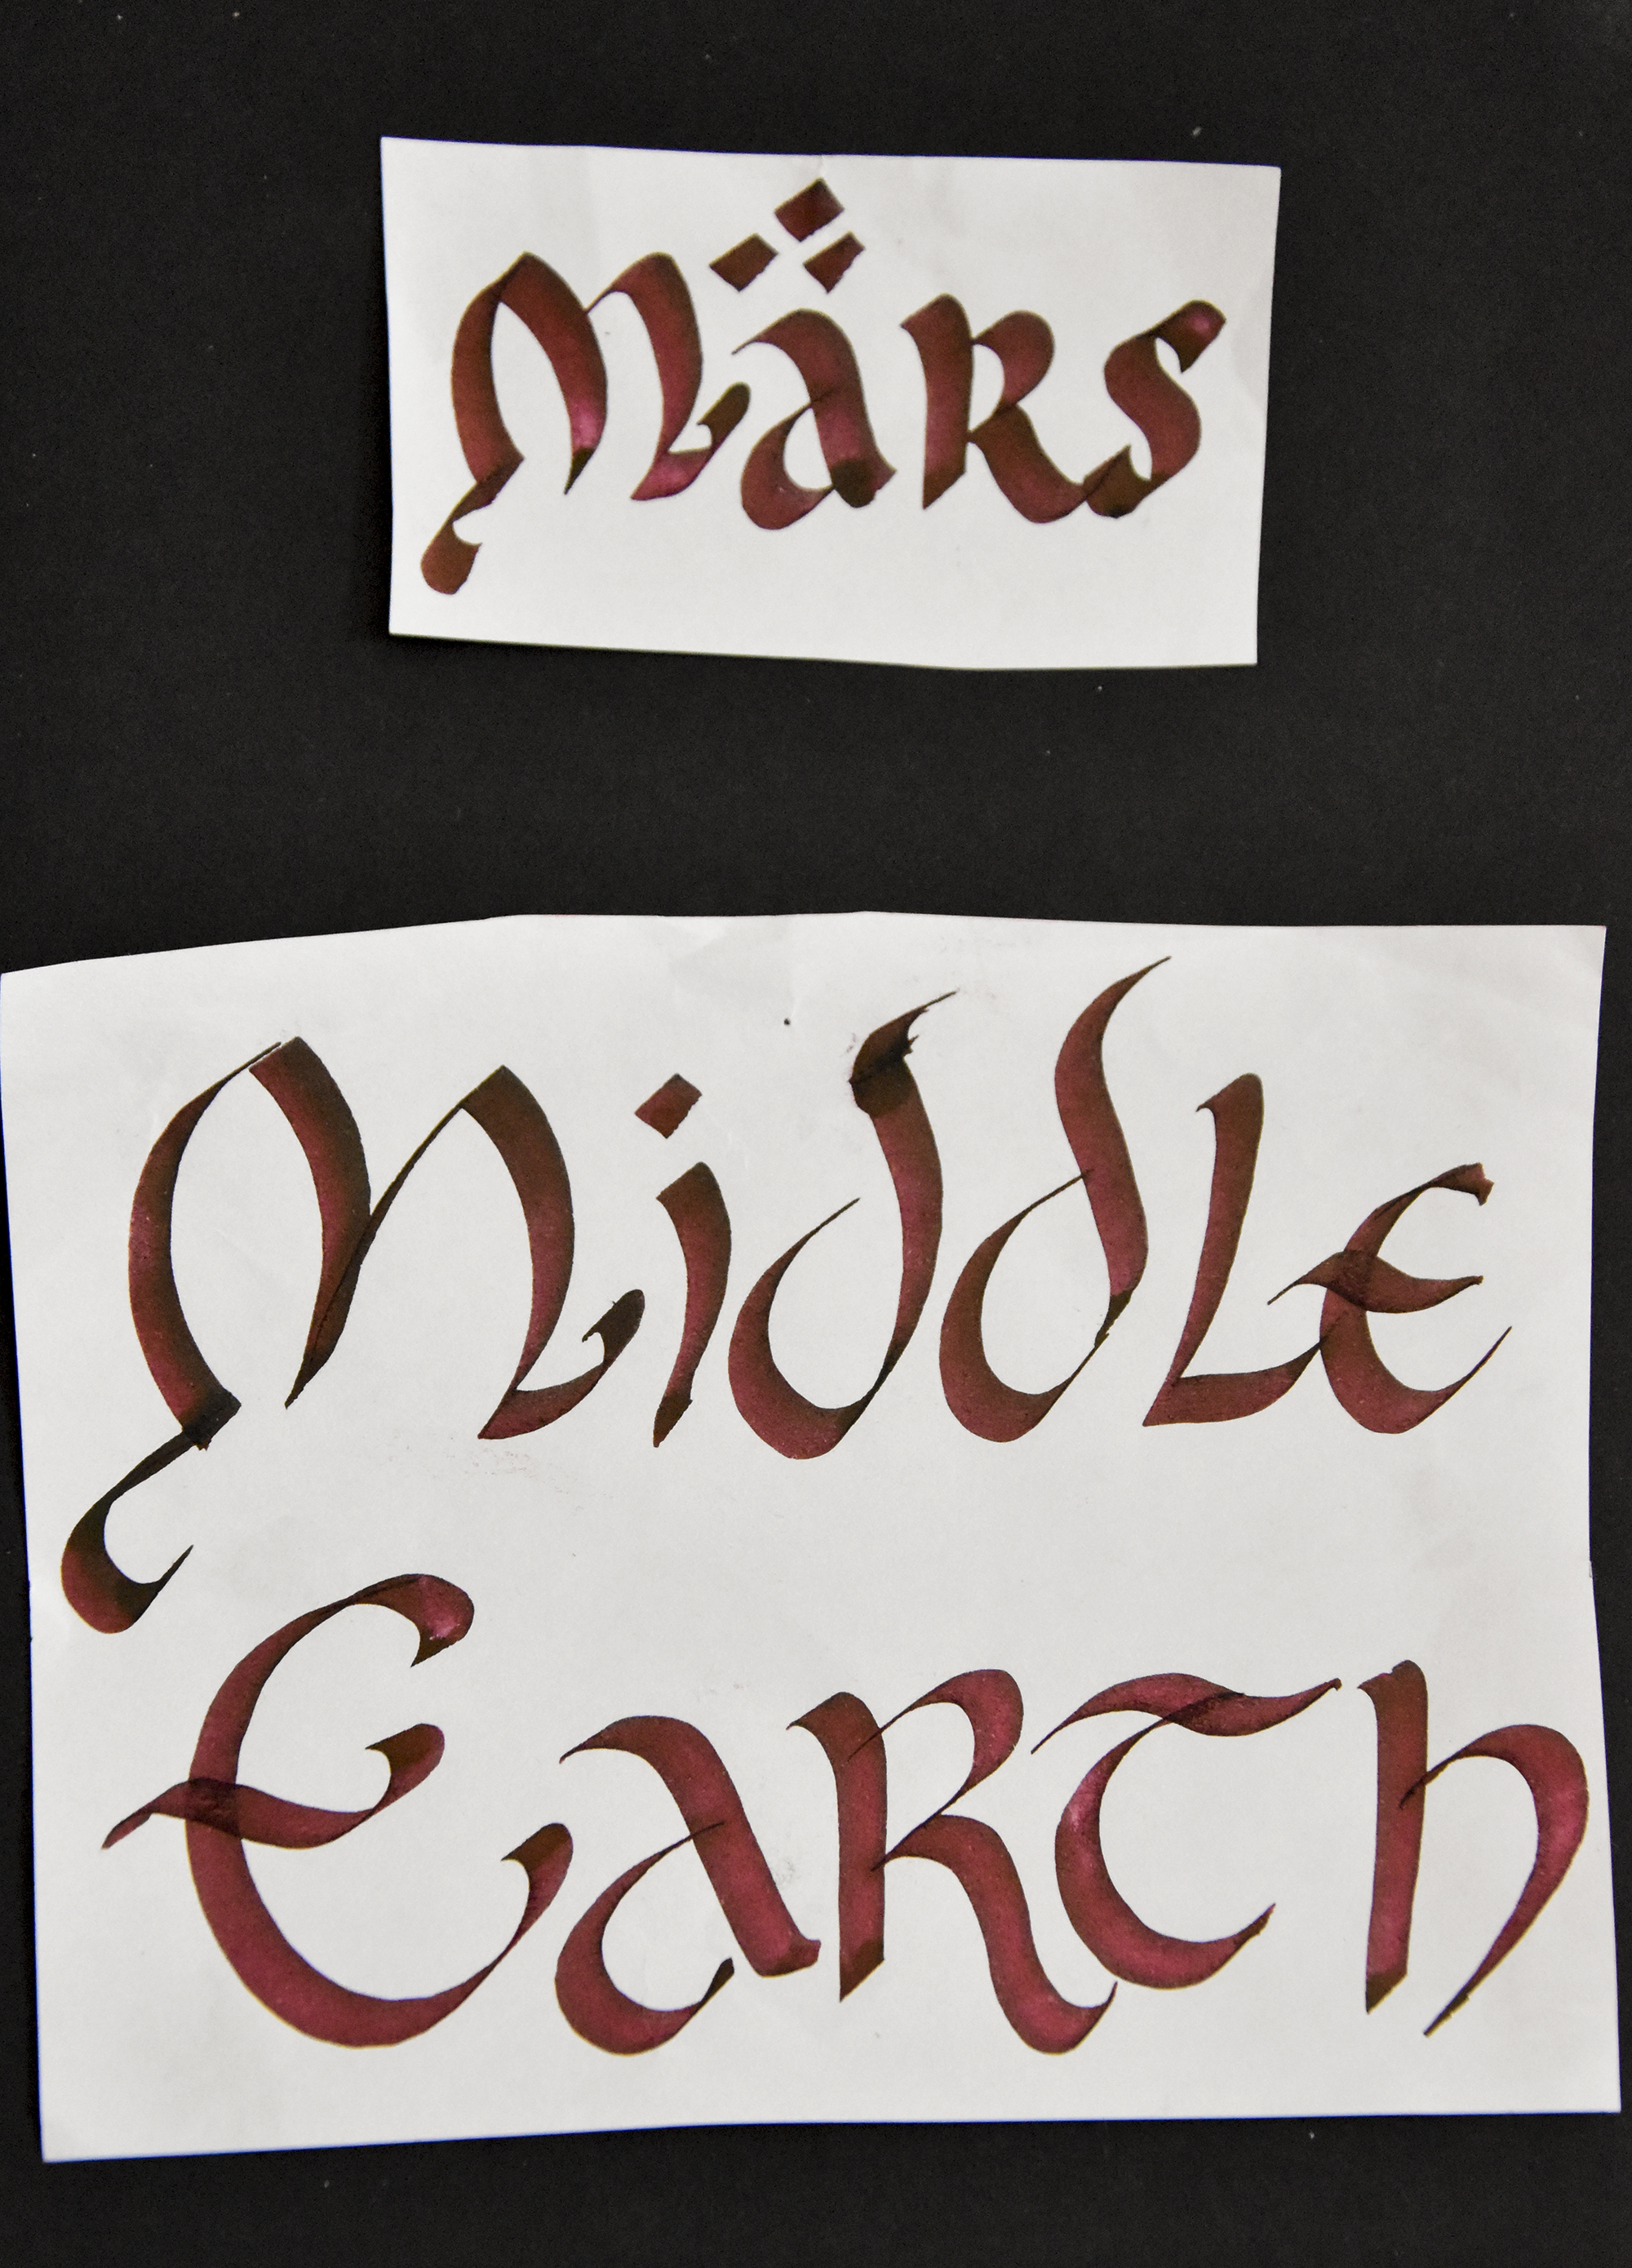 Märs
Middle
Earth